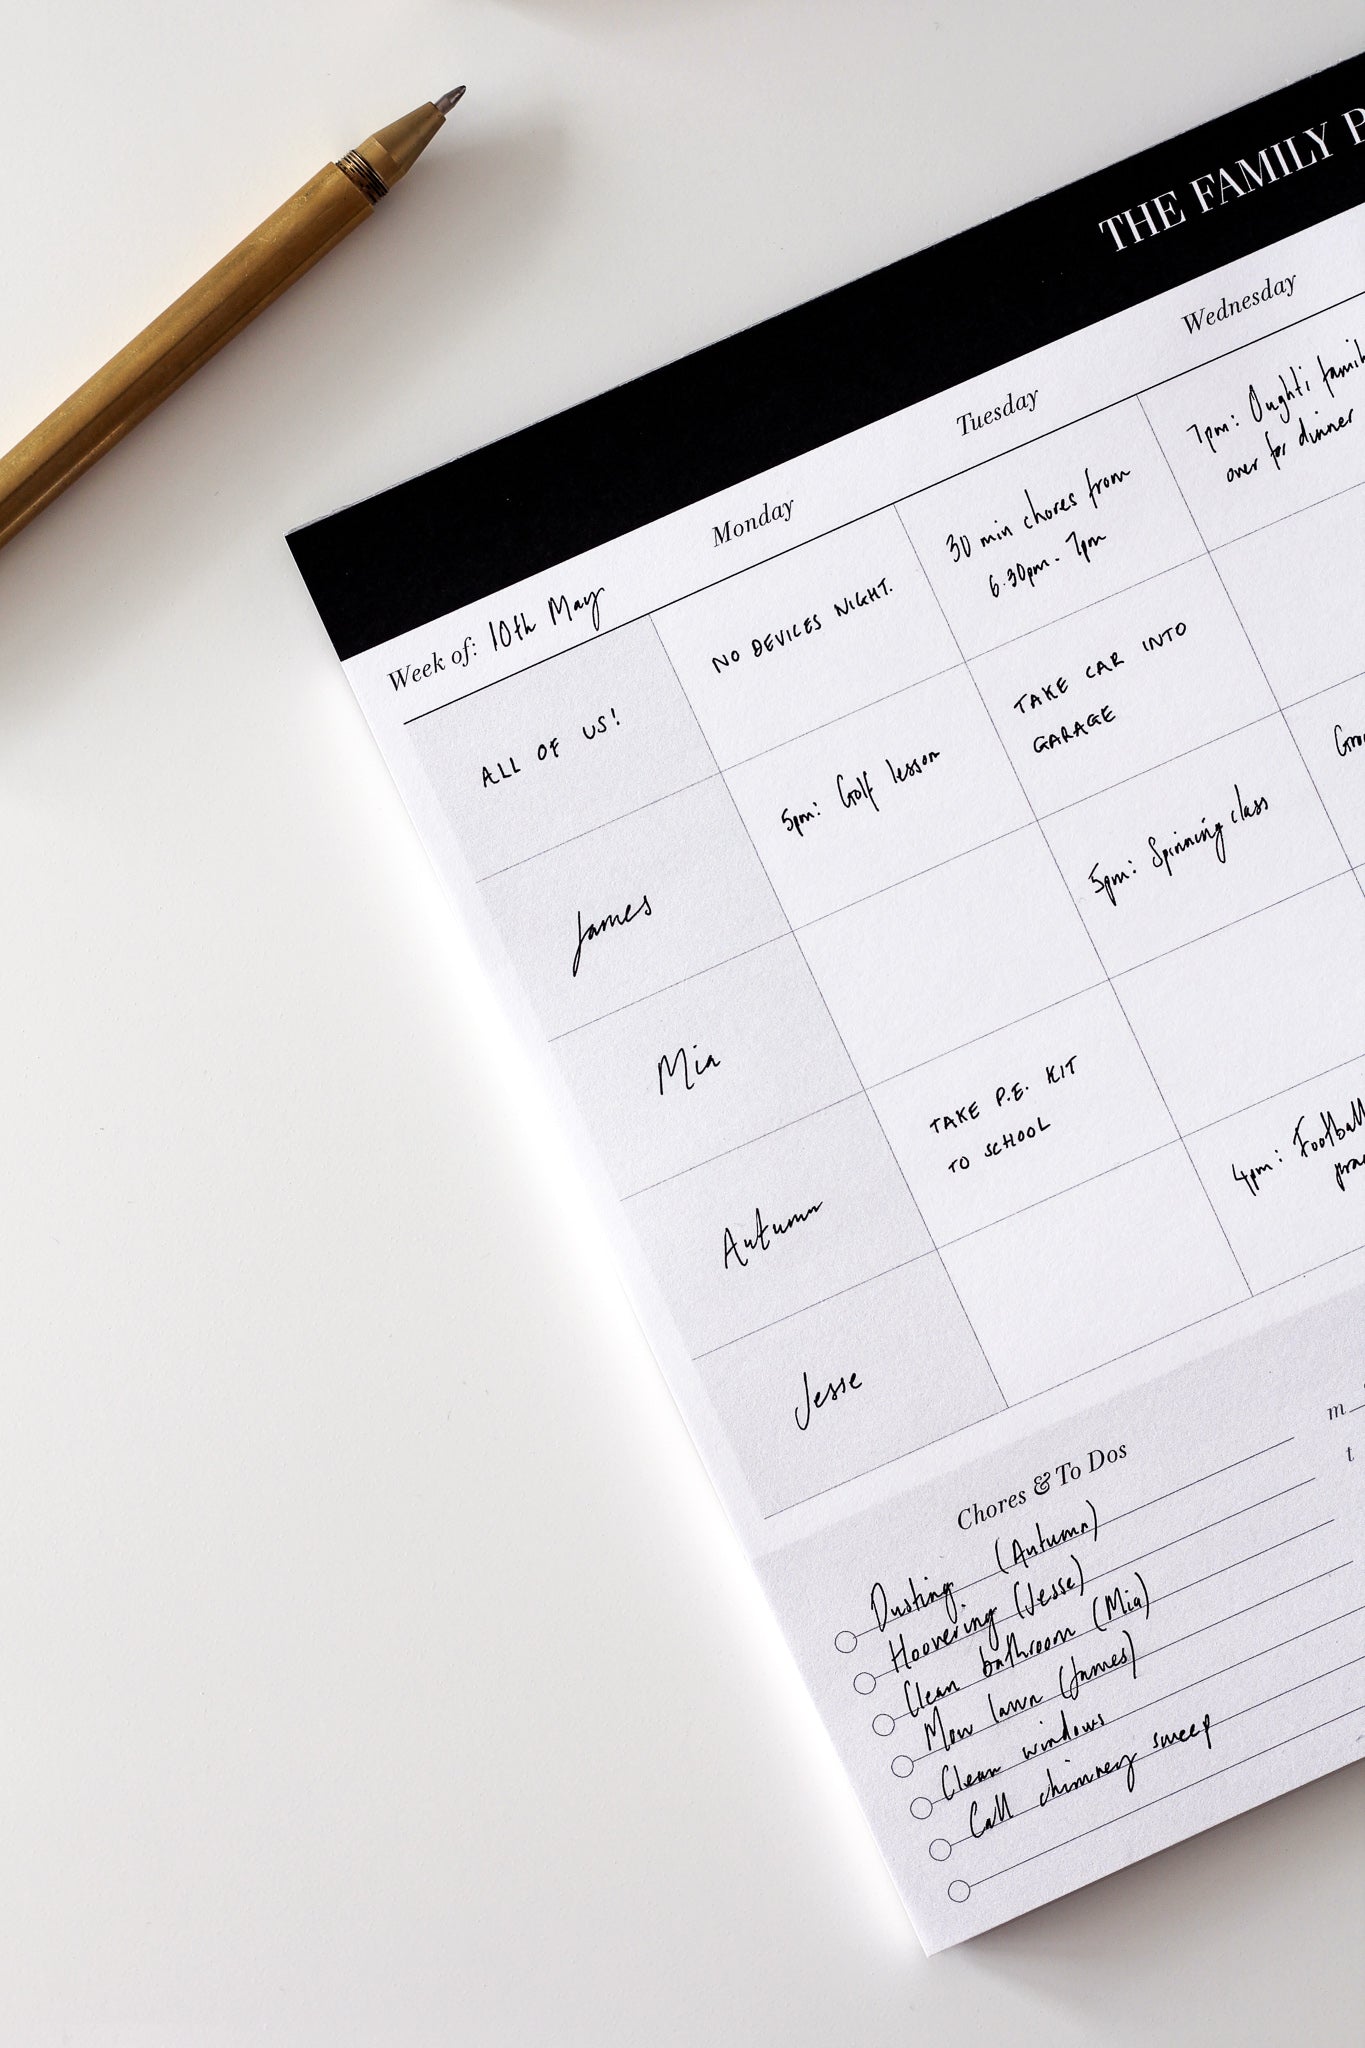 THE FAMILY
Monday
Tuesday
Wednesday
Week of: 10th May
ALL OF US!
NO DEVICES NIGHT.
30 min chores from
6.30pm - 7pm
7pm: Oughti
over for dinner
James
5pm: Golf lesson
TAKE CAR INTO
GARAGE
Mia
5pm: Spinning class
Autumn
TAKE P.E. KIT
TO SCHOOL
Jesse
4pm: Football
Chores & To Dos
m
t
Dusting (Autumn)
Hoovering (Jesse)
Clean bathroom (Mia)
Mow lawn (James)
Clean windows
Call chimney sweep